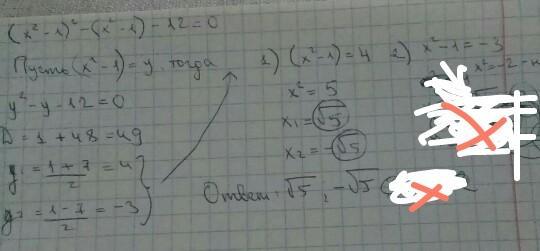 (x²-1)²-(x²-1)-12=0
Пусть (x²-1)=y, тогда
y²-y-12=0
D=1+48=49
y₁=\frac{1+7}{2}=4
y₂=\frac{1-7}{2}=-3
1) (x²-1)=4
x²=5
x₁=√5
x₂=-√5
2) x²-1=-3
x²=-2
Ответ: √5, -√5